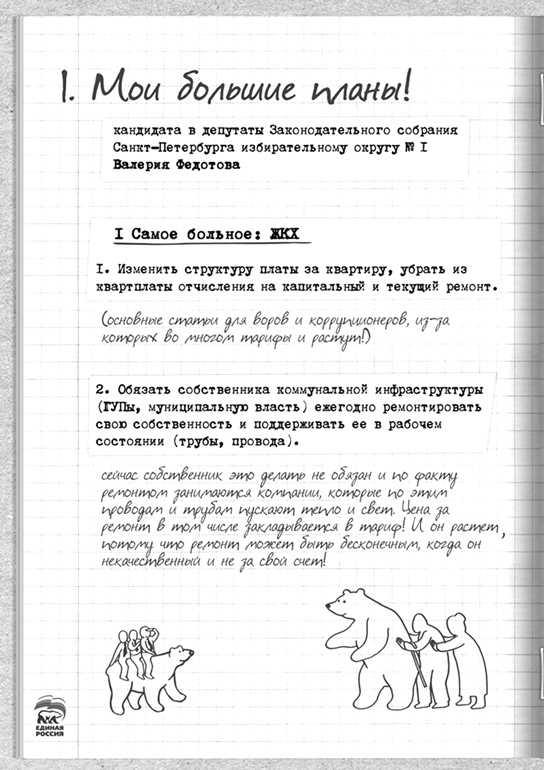 1. Мои большие планы!
кандидата в депутаты Законодательного собрания
Санкт-Петербурга избирательному округу № I
Валерия Федотова
I Самое больное: ЖКХ
I. Изменить структуру платы за квартиру, убрать из
квартплаты отчисления на капитальный и текущий ремонт.
(основные статьи для воров и коррупционеров, из-за
которых во многом тарифы и растут!)
2. Обязать собственника коммунальной инфраструктуры
(ГУПы, муниципальную власть) ежегодно ремонтировать
свою собственность и поддерживать ее в рабочем
состоянии (трубы, провода).
сейчас собственник это делать не обязан и по факту
ремонтом занимаются компании, которые по этим
проводам и трубам пускают тепло и свет. Цена за
ремонт в том числе закладывается в тариф! И он растет,
потому что ремонт может быть бесконечным, когда он
некачественный и не за свой счет!
ЕДИНАЯ
РОССИЯ